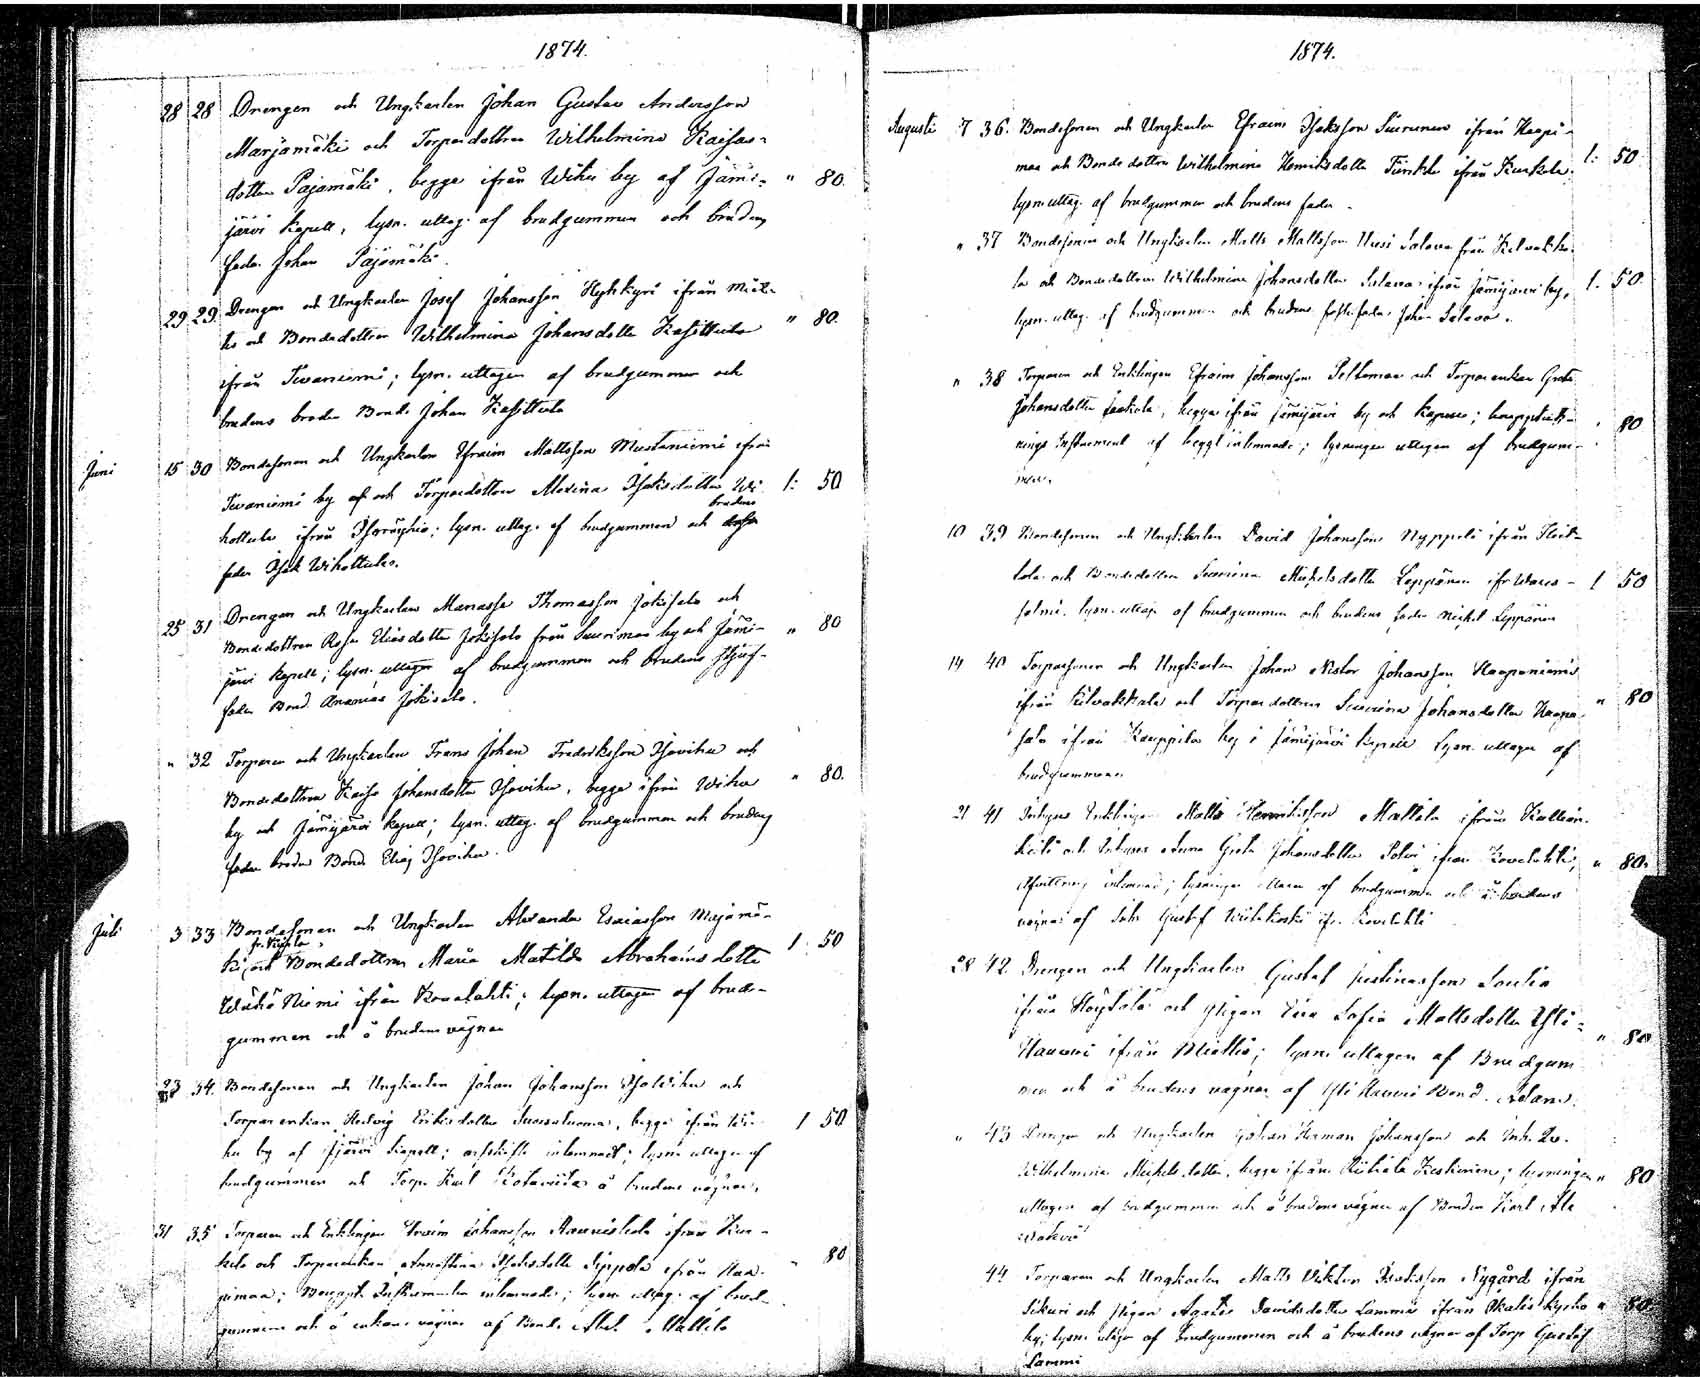 1874.
28 28 Drengen och Ungkarlen Johan Gustav Andersson
Marjamäki och Torpardottren Wilhelmina Kaisas-
dotter Pajamäki, begge ifrån Wihu by af Jämi- " 80.
järvi kapell, lysn. uttag. af brudgummen och brudens
fader Johan Pajamäki.
29 29. Drengen och Ungkarlen Josef Johansson Hyhkyri ifrån Miet-
tis och Bondedottren Wilhelmina Johansdotter Kasittula " 80.
ifrån Tevaniemi; lysn. uttagen af brudgummen och
brudens broder Bond. Johan Kasittula
Juni 15 30 Bondesonen och Ungkarlen Efraim Mattsson Mustaniemi ifrån
Tevaniemi by och Torpardottren Maxina Isaksdotter Wi- 1: 50
hottula ifrån Isoröyhiö; lysn. uttag. af brudgummen och brudens
fader Isak Wihottula.
25 31 Drengen och Ungkarlen Manasse Thomasson Jokisalo och
Bondedottren Rosa Eliasdotter Jokisalo från Suurimaa by och Jämi- " 80
järvi kapell; lysn. uttagen af brudgummen och brudens styf-
fader Bond. Ananias Jokisalo.
" 32 Torparen och Ungkarlen Frans Johan Fredriksson Isovihu och
Bondedottren Kaisa Johansdotter Isovihu, begge ifrån Wihu " 80.
by och Jämijärvi kapell; lysn. uttag. af brudgummen och brudens
fader broder Bond. Elias Isovihu.
Juli 3 33 Bondesonen och Ungkarlen Alexander Esaiasson Majamä-
fr. Vigola
ki, och Bondedottren Maria Matilda Abrahamsdotter 1: 50
Wähä Niemi ifrån Kovelahti; lysn. uttagen af brud-
gummen och å brudens vägnar
23 34. Bondesonen och Ungkarlen Johan Johansson Isovihu och
Torparenkan Hedvig Eriksdotter Suosaluoma, begge ifrån Wi- 1 50
hu by af Jjärvi kapell; arfskifte inlemnadt; lysn. uttagen af
brudgummen och Torp. Karl Kotaviita å brudens vägnar.
31 35 Torparen och Enklingen Efraim Johansson Haavistola ifrån Kur-
kela och Torparenkan Annastina Isaksdotter Sippola ifrån Haa- " 80
pimaa; Bouppt. Instrumenter inlemnade; lysn. uttag. af brud-
gummen och å enkans vägnar af Bond. Abel Mattila
1874.
Augusti 7 36. Bondesonen och Ungkarlen Efraim Isaksson Suurunen ifrån Haapi-
maa och Bondedottren Wilhelmina Henriksdotter Turkki ifrån Kurkela; 1: 50
lysn. uttag. af brudgummen och brudens fader.
" 37 Bondesonen och Ungkarlen Matts Mattsson Uusi Salava från Kilvakka-
la och Bondedottren Wilhelmina Johansdotter Salava ifrån Jämijärvi by, 1. 50.
lysn. uttag. af brudgummen och brudens fosterfader Johan Salava.
" 38 Torparen och Enklingen Efraim Johansson Peltomaa och Torparenkan Greta
Johansdotter Jaakola, begge ifrån Jämijärvi by och kapell; bouppteck- " 80
nings Instrument af begge inlemnade; lysningen uttagen af brudgum-
men.
10 39 Bondesonen och Ungkarlen David Johansson Nyppeli ifrån Heit-
tola och Bondedottren Susanna Mickelsdotter Leppänen ifr. Wares- 1 50
salmi, lysn. uttag. af brudgummen och brudens fader Mickel Leppänen
14 40 Torparsonen och Ungkarlen Johan Nestor Johansson Haapaniemi
ifrån Kilvakkala och Torpardottren Susanna Johansdotter Haapa- " 80
salo ifrån Kauppila by i Jämijärvi kapell lysn. uttagen af
brudgummen.
21 41 Inhyses Enklingen Matts Henriksson Mattila ifrån Kallion-
kieli och Inhyses Anna Greta Johansdotter Salvi ifrån Kovelahti, " 80.
inlemnad; lysningen uttagen af brudgummen och å brudens
vägnar af Gustaf ifr. Kovelahti
28 42. Drengen och Ungkarlen Gustaf Justinasson Soulia
ifrån Röyhiö och Pigan Eva Sofia Mattsdotter Yli-
Hannu ifrån Miettis; lysn. uttagen af Brudgum- " 80
men och å brudens vägnar af Yli Hannu Bond. Adam.
" 43 Drengen och Ungkarlen Johan Herman Johansson och Inh.
Wilhelmina Mickelsdotter, begge ifrån Riitiala Keskinen; lysningen " 80
uttagen af brudgummen och å brudens vägnar af Bonden Karl Ala
44 Torparen och Ungkarlen Matts Viktor Isaksson Nygård ifrån
Sikuri och Pigan Agata Davidsdotter Lammi ifrån Ikalis Kyrko " 80.
by; lysn. uttagen af brudgummen och å brudens vägnar af Torp Gustaf
Lammi